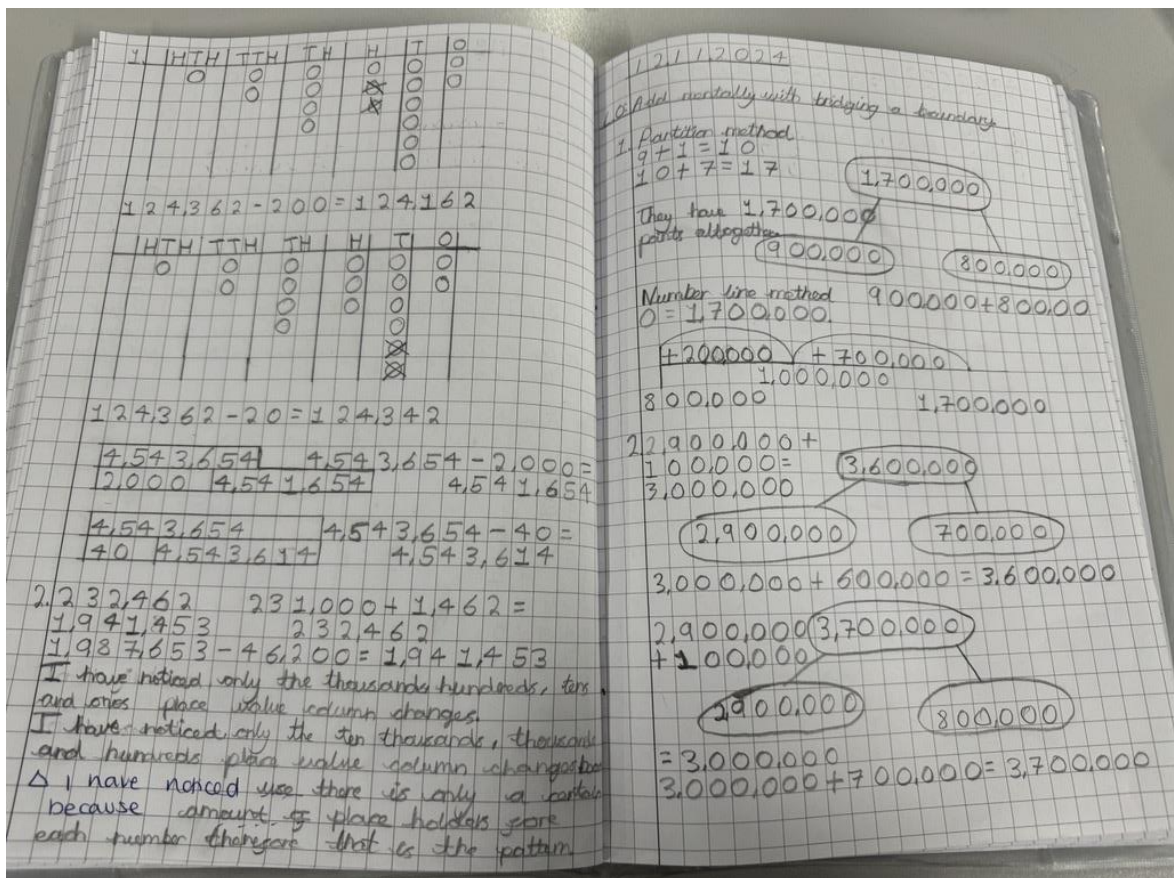 1. HTH TTH TH H T O
124,362-200=124,162
HTH TTH TH H T O
124,362-20=124,342
4,543,654 4,543,654-2,000=
2,000 4,541,654 4,541,654
4,543,654 4,543,654-40=
40 4,543,614 4,543,614
2. 232,462 231,000+1,462=
1,941,453 232,462
1,987,653-46,200=1,941,453
I have noticed only the thousands hundreds, tens
and ones place value column changes.
I have noticed only the ten thousands, thousands
and hundreds place value column changes
△ I have noticed there is only a certain
because amount of place holders
each number therefore that is the pattern
12/11/2024
Add mentally with bridging a boundary
1. Partition method
9+1=10
10+7=17
1,700,000
They have 1,700,000
points altogether
900,000
800,000
Number line method 900,000+800,00
0=1,700,000.
+200,000 +700,000
1,000,000
800,000 1,700,000
2 2,900,000+
100,000=
3,000,000
3,600,000
2,900,000 700,000
3,000,000+600,000=3,600,000
2,900,000 3,700,000
+100,000
2,900,000 800,000
=3,000,000
3,000,000+700,000=3,700,000